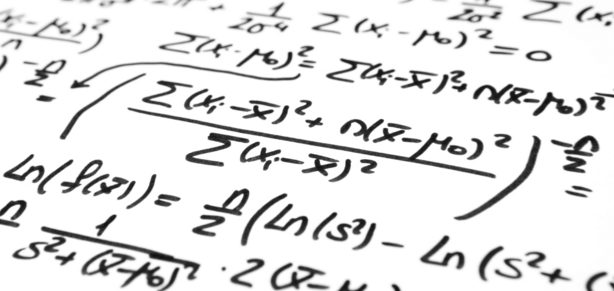 1/2σ⁴ Σ(xᵢ-μ₀)² = 0
(xᵢ-μ₀)²/n) Σ(xᵢ-μ₀)² = Σ(xᵢ-x̄)² + n(x̄-μ₀)²
)^(-n/2) = ((Σ(xᵢ-x̄)² + n(x̄-μ₀)²)/(Σ(xᵢ-x̄)²))^(-n/2) =
Ln(f(x̄)) = n/2 (Ln(s²) - Ln(s² +
n 1/(s²+(x̄-μ₀)²) · 2(x̄-μ